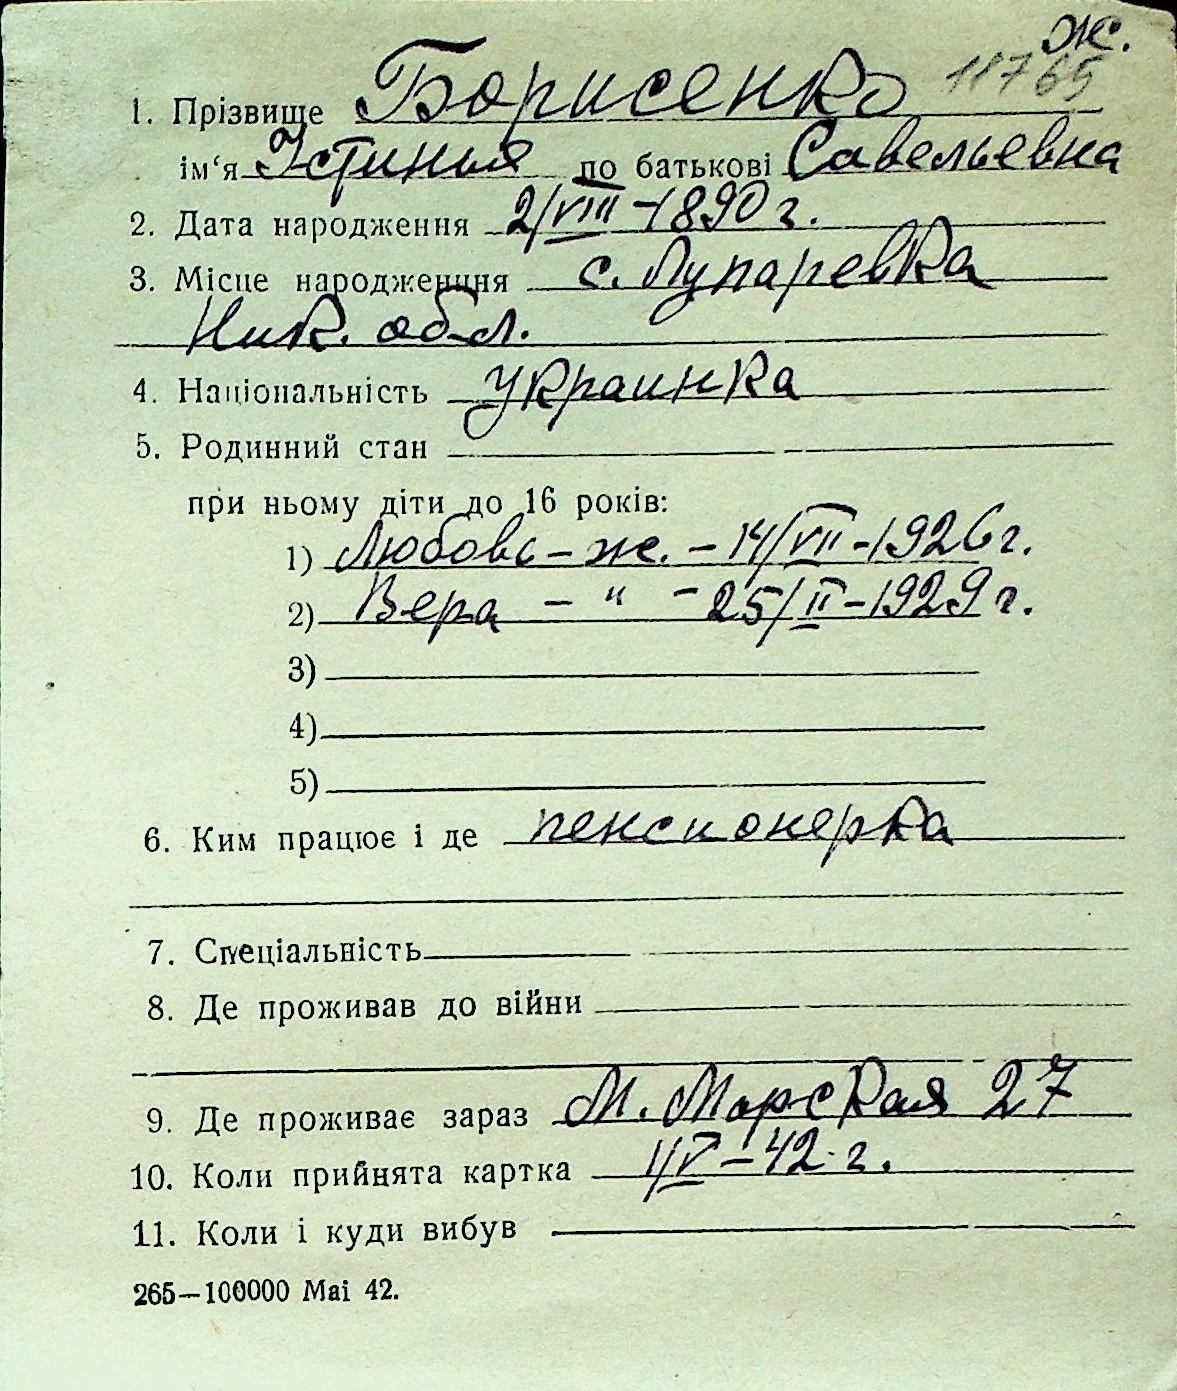 ж.
11765
1. Прізвище Борисенко
ім‘я Устинья по батькові Савельевна
2. Дата народження 2/VIII – 1890 г.
3. Місце народженння с. Лупаревка
Ник. обл.
4. Національність Украинка
5. Родинний стан
при ньому діти до 16 років:
1) Любовь – ж. – 14/VII – 1926 г.
2) Вера – " – 25/II – 1929 г.
3)
4)
5)
6. Ким працює і де пенсионерка
7. Спеціальність
8. Де проживав до війни
9. Де проживає зараз М. Морская 27
10. Коли прийнята картка 1/V – 42 г.
11. Коли і куди вибув
265—100000 Mai 42.